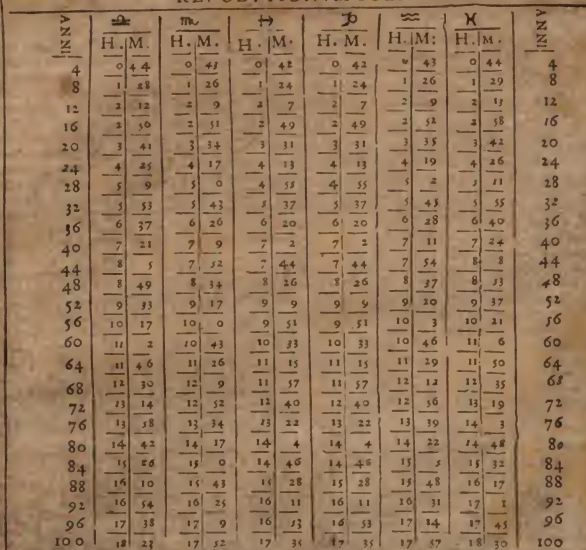 ANNI ♎ ♏ ♐ ♑ ♒ ♓ ANNI
H. M. H. M. H. M. H. M. H. M: H. M.
4 0 44 0 43 0 42 0 42 0 43 0 44 4
8 1 28 1 26 1 24 1 24 1 26 1 29 8
12 2 12 2 9 2 7 2 7 2 9 2 13 12
16 2 56 2 51 2 49 2 49 2 52 2 58 16
20 3 41 3 34 3 31 3 31 3 35 3 42 20
24 4 25 4 17 4 13 4 13 4 19 4 26 24
28 5 9 5 0 4 55 4 55 5 2 5 11 28
32 5 53 5 43 5 37 5 37 5 45 5 55 32
36 6 37 6 26 6 20 6 20 6 28 6 40 36
40 7 21 7 9 7 2 7 2 7 11 7 24 40
44 8 5 7 52 7 44 7 44 7 54 8 8 44
48 8 49 8 34 8 26 8 26 8 37 8 53 48
52 9 33 9 17 9 9 9 9 9 20 9 37 52
56 10 17 10 0 9 51 9 51 10 3 10 21 56
60 11 2 10 43 10 33 10 33 10 46 11 6 60
64 11 46 11 26 11 15 11 15 11 29 11 50 64
68 12 30 12 9 11 57 11 57 12 12 12 35 68
72 13 14 12 52 12 40 12 40 12 56 13 19 72
76 13 58 13 34 13 22 13 22 13 39 14 3 76
80 14 42 14 17 14 4 14 4 14 22 14 48 80
84 15 26 15 0 14 46 14 46 15 5 15 32 84
88 16 10 15 43 15 28 15 28 15 48 16 17 88
92 16 54 16 25 16 11 16 11 16 31 17 1 92
96 17 38 17 9 16 53 16 53 17 14 17 45 96
100 18 23 17 52 17 35 17 35 17 57 18 30 100